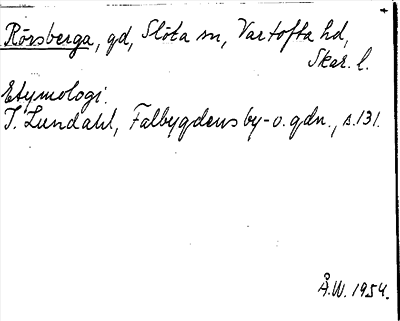 Rörsberga, gd, Slöta sn, Vartofta hd,
Skar. l.
Etymologi.
I. Lundahl, Falbygdens by- o. gdn., s.131.
Å.W. 1954.